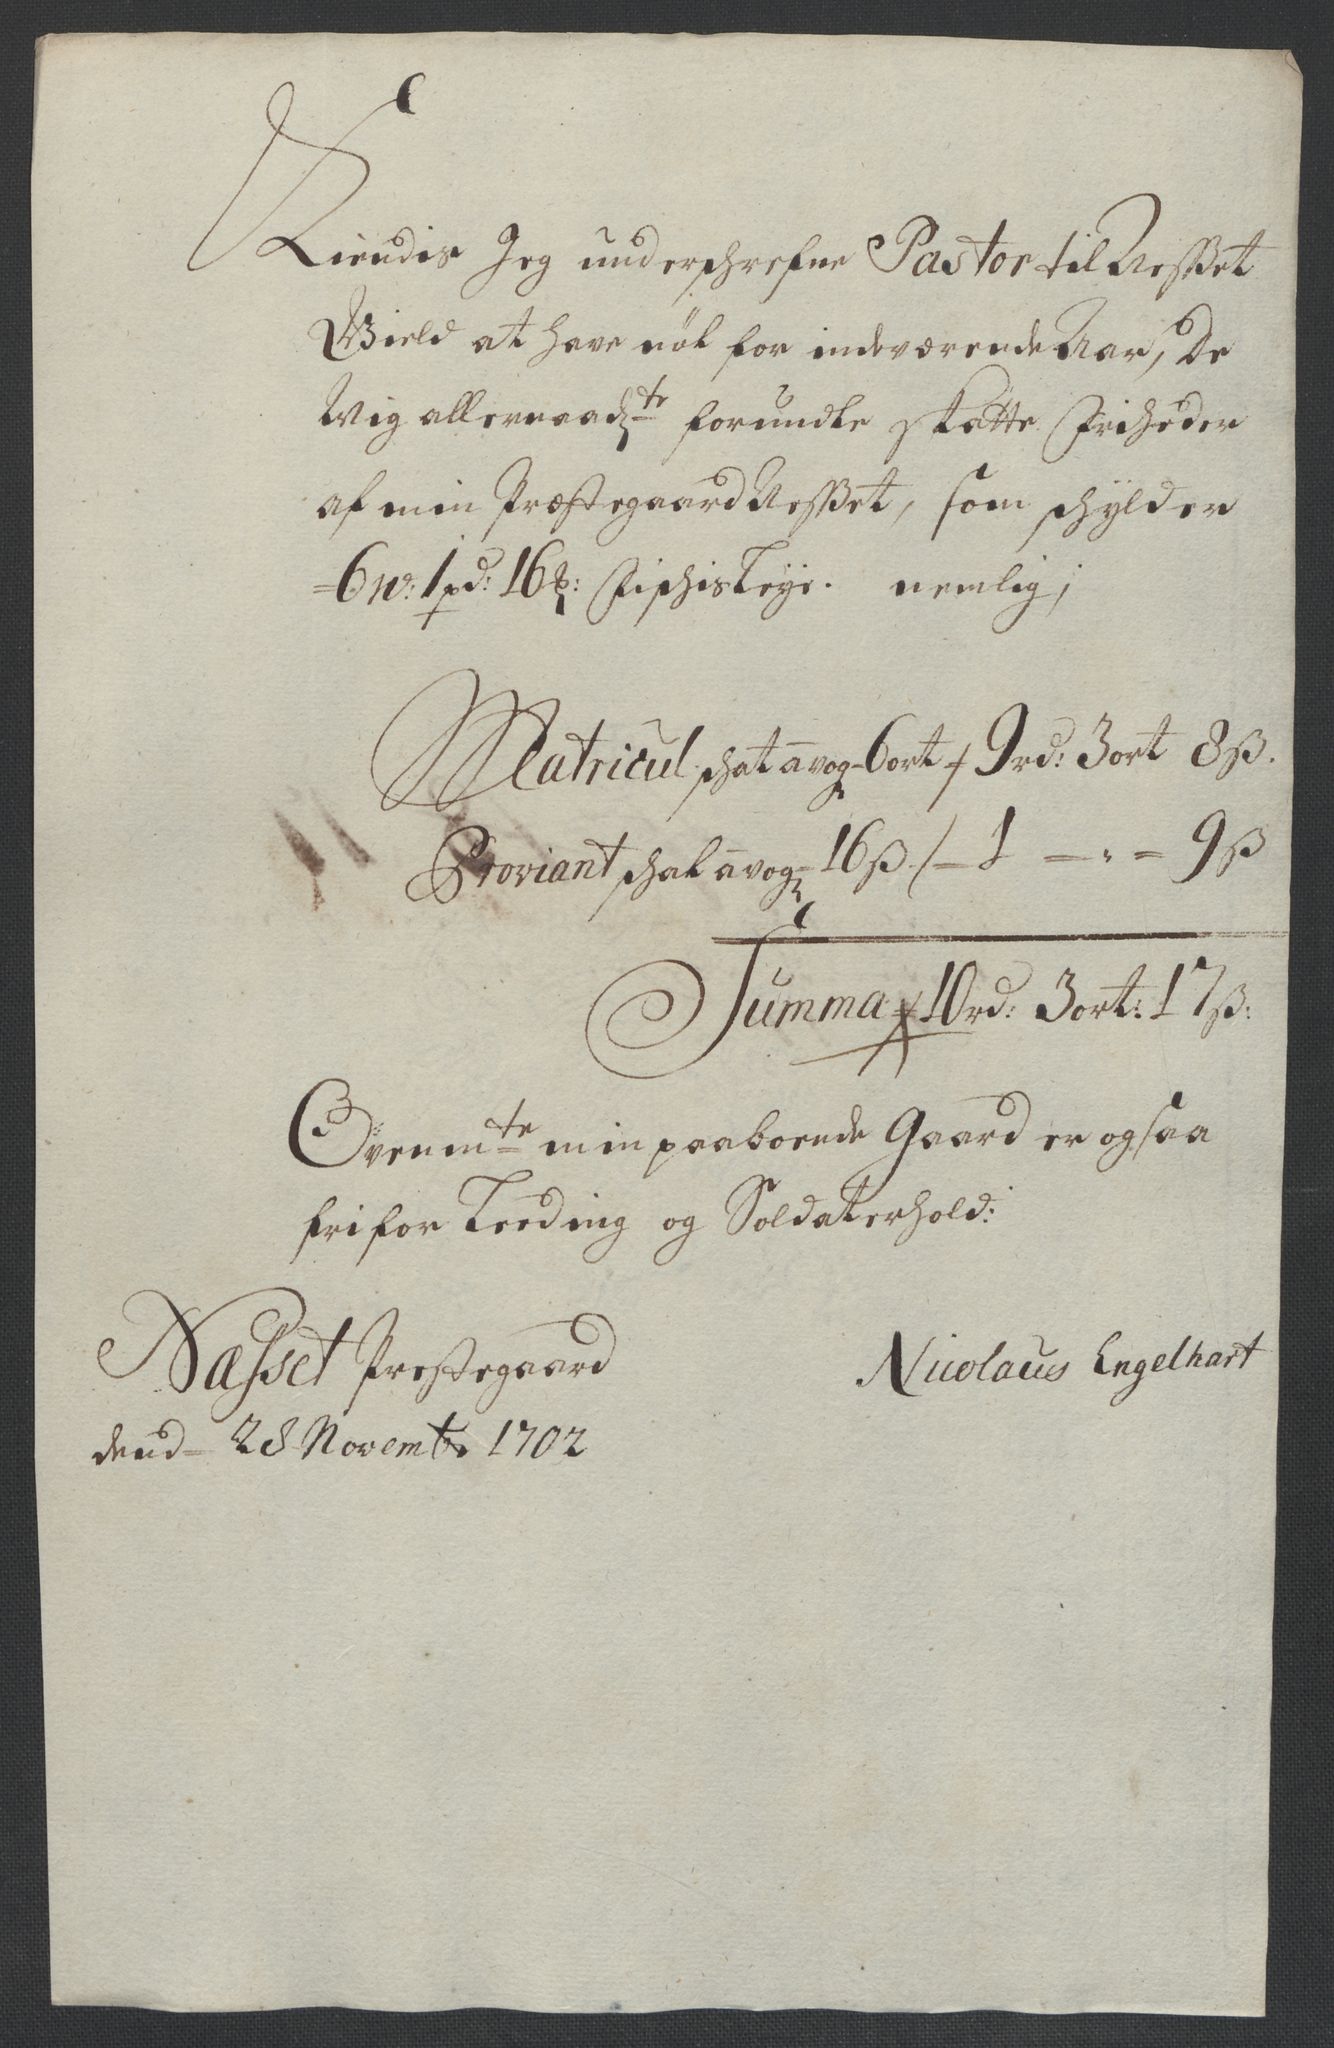 Kiendis Jeg underschrefne Pastor til Nesset
Gield at have nöt for indeværende Aar, de
Mig allernaadte forundte skatte friheder
af min Præstegaard Nesset, som schylder
6 w: 1 pd: 16 ℔: fischis Leye. nemlig;
Matricul schat a vog 6 ort / 9 rd: 3 ort 8 ß.
Proviant schat a vog 16 ß / 1 - " - 9 ß
Summa 10 rd: 3 ort: 17 ß:
Ovenmte min paaboende Gaard er ogsaa
fri for Leeding og Soldaterhold:
Næsset Prestegaard
dend 28 Novembr 1702
Nicolaus Engelhart